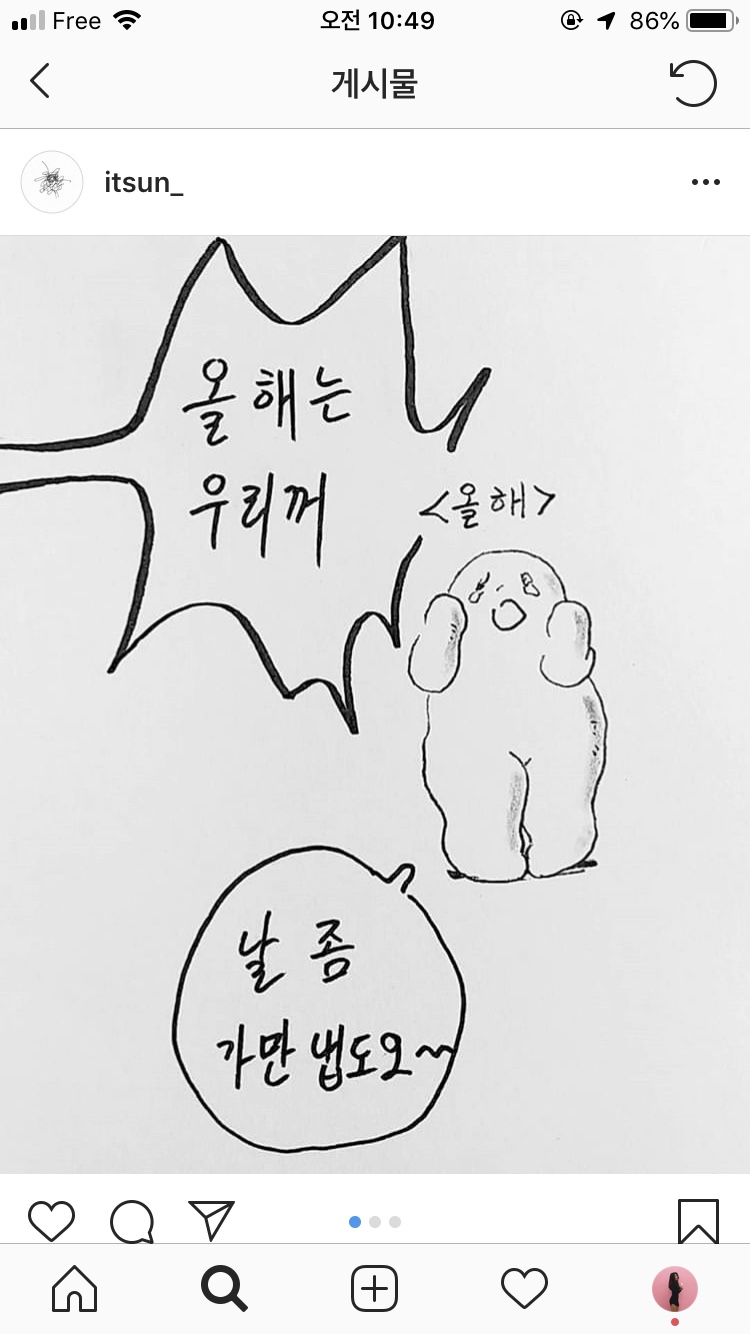 Free 오전 10:49 86%
게시물
itsun_
올해는
우리꺼
<올해>
날 좀
가만 냅도오~